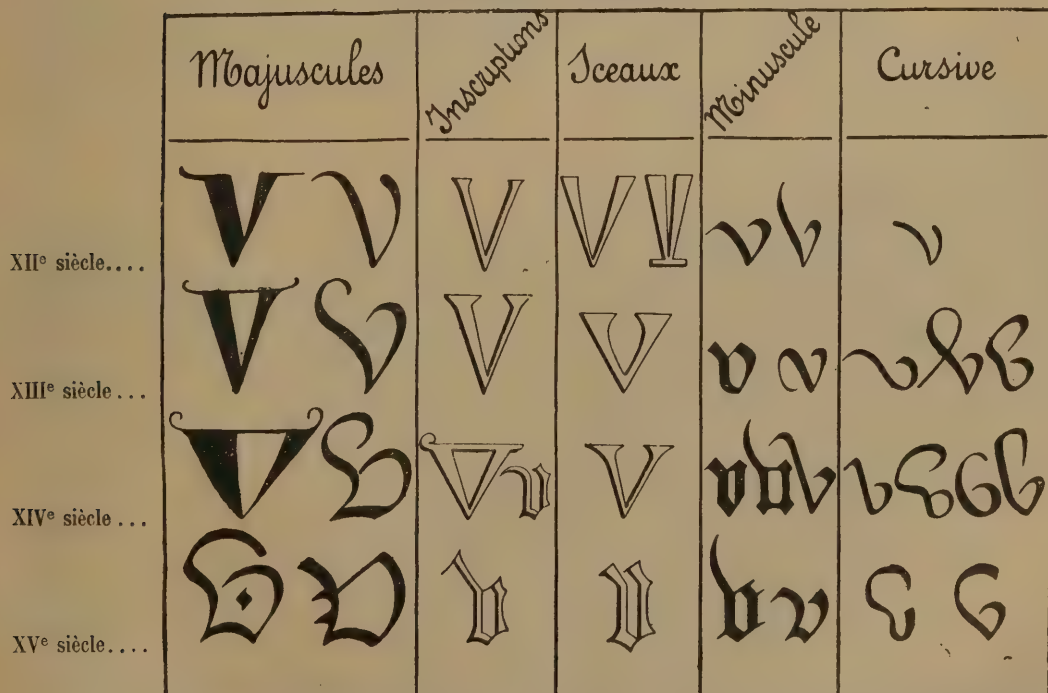 Majuscules Inscriptions Sceaux Minuscule Cursive
XIIᵉ siècle.... V V V V V v v v
XIIIᵉ siècle... V V V V v v v v v
XIVᵉ siècle... V V V v V v v v v v v v
XVᵉ siècle.... V V v v v v v v